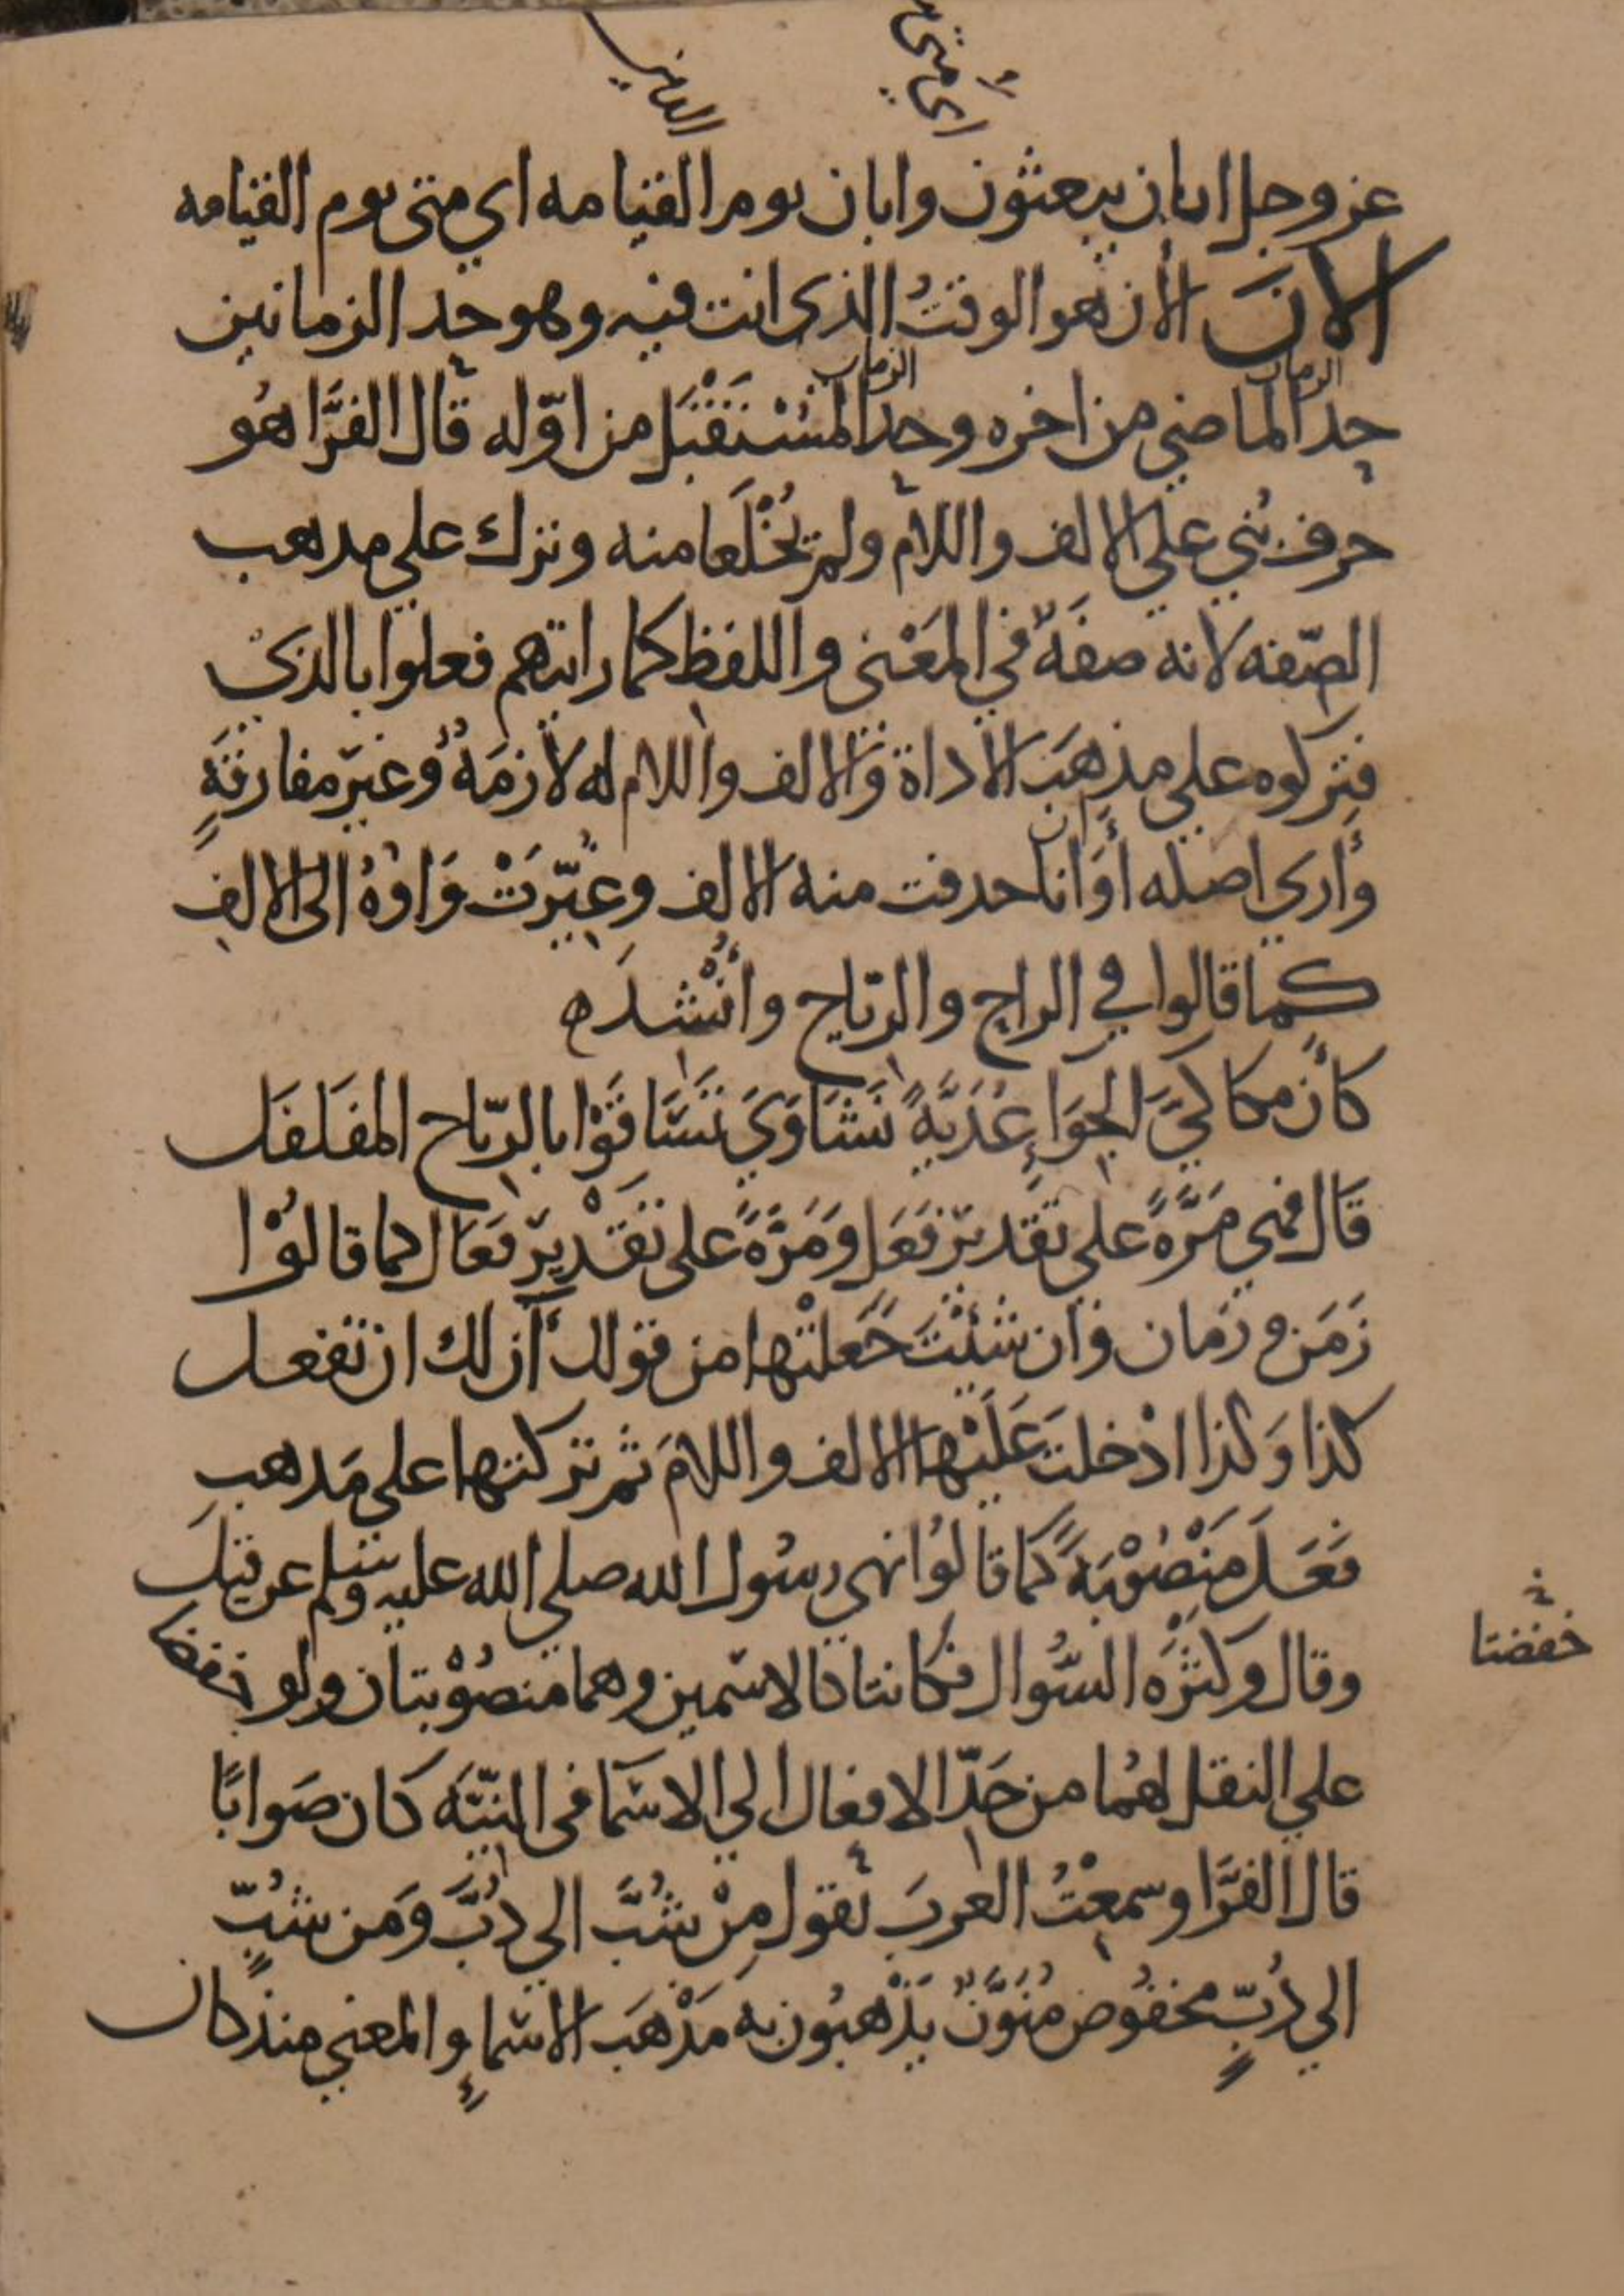 اي متى
عز وجل ايان يبعثون وايان يوم القيامه اي متى يوم القيامه
الانَ الأن هو الوقتُ الذي انت فيه وهو حد الزمانين
حد الزمان الماضي من اخره وحد الزمان المسْتَقْبَل من اوّله قال الفرَّا هُو
حرف بُني علي الالف واللام ولم يُخْلَعا منه وترك على مدهب
الصّفه لانه صفةٌ في المَعْنى واللفظ كما رايتهم فعلوا بالذي
فتركوه على مذهَب الاداة والالف واللام له لازمَةٌ وغيرَ مفارقَةٍ
وأرى اصله أوَان حدفت منه الالف وغيّرَتْ وَاوُهُ الى الالف
كما قالوا في الراح والريّاح وانْشد
كأن مكاكيَّ الجِوَاءِ غُدَيَّةً نَشَاوَى تَسَّاقَوْا بالرّياح المفَلفَل
قَال فهي مَرَّةً على تقديرِ فَعَل وَمَرَّةً على تَقْدِيرِ فعَال كما قالوُا
زَمَن وزَمان وان شئْتَ جَعَلتْها من قولك أن لك ان تفعل
كذا وَكذا ادْخلتَ عَلَيْها الالف واللامَ ثم تركتها على مَدهب
فَعَلَ مَنْصُوْبَةً كما قالوُا نهى رسُول الله صلى الله عليه وسلم عن قيلَ
وقال وكثرَه السُّوال فكانتا كالاسْمين وهما منصُوْبتان ولو خفضتا
خفضتا
على النقل لهُما من حَدّ الافعال الي الاسْمَا في النيّة كان صَوابًا
قال الفَرَّا وسمعْتُ العربَ تقول مِنْ شُبَّ الى دُبَّ وَمن شُبٍّ
الى دُبٍّ مخفوُض مُنوَّنٌ يَذْهبُون به مَذْهَبَ الاسْماءِ والمعنى منذ كان